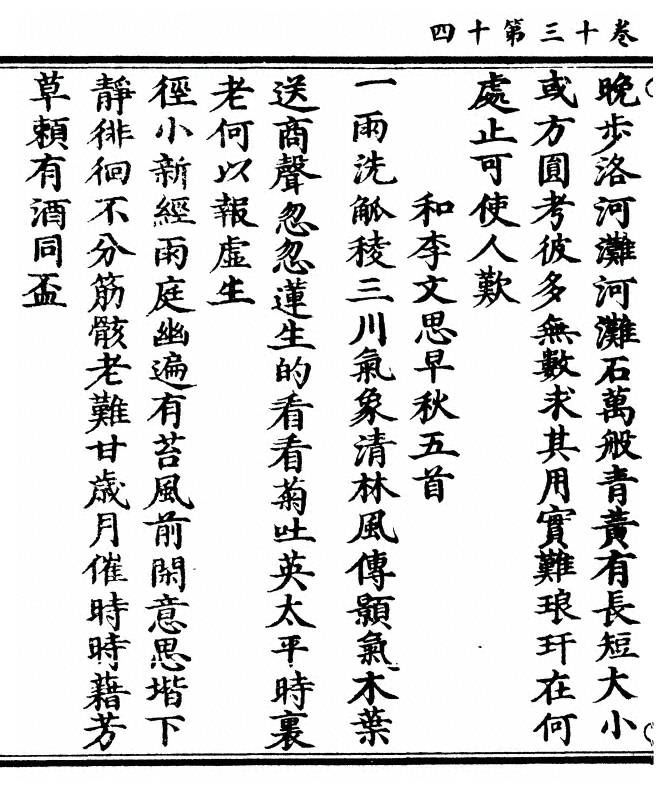 卷十三第十四
晚步洛河灘河灘石萬般青黃有長短大小
或方圓考彼多無數求其用實難琅玕在何
處止可使人歎
和李文思早秋五首
一雨洗觚稜三川氣象清林風傳顥氣木葉
送商聲忽忽蓮生的看看菊吐英太平時裏
老何以報虛生
徑小新經雨庭幽遍有苔風前閑意思堦下
靜徘徊不分筋骸老難甘歲月催時時藉芳
草頼有酒同盃